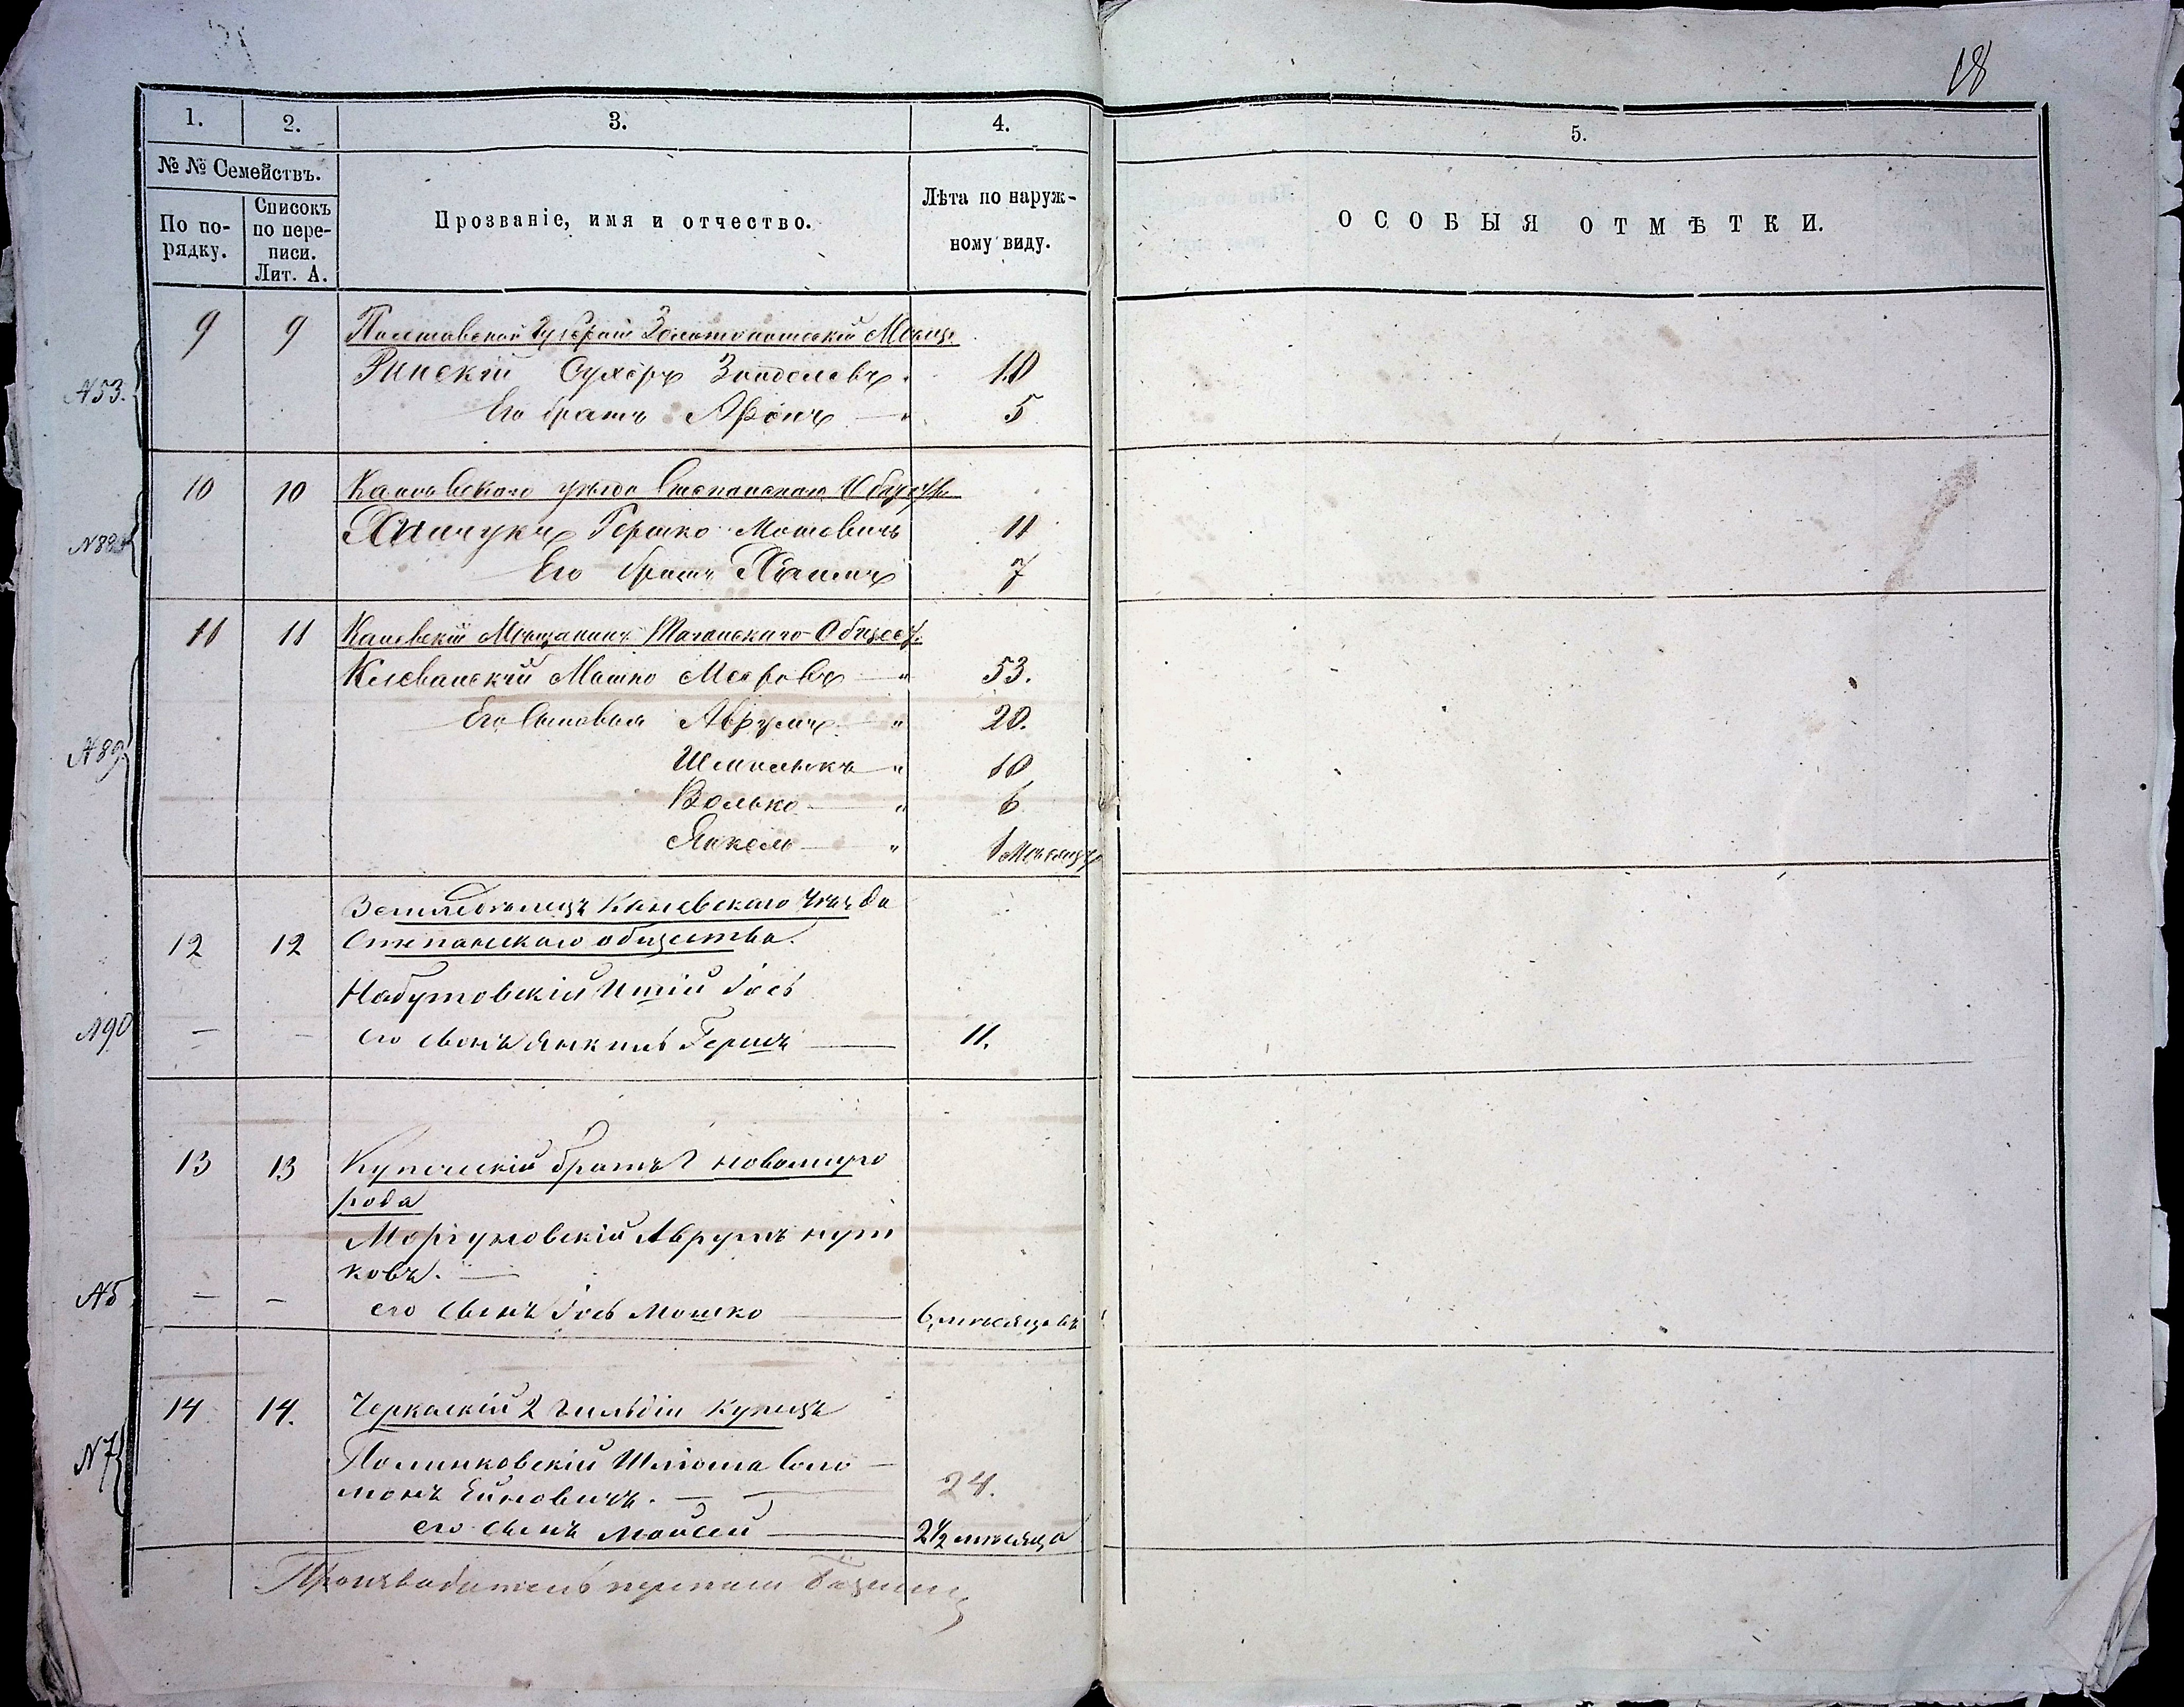 18
1. 2. 3. 4. 5.
№ № Семействъ.
По по-
рядку.
Списокъ
по пере-
писи.
Лит. А.
Прозваніе, имя и отчество.
Лѣта по наруж-
ному виду.
ОСОБЫЯ ОТМѢТКИ.
9 9 Полтавской Губерніи Золотоношскій Мѣщ.
Рипскій Сухеръ 10
N53.
Его братъ Аронъ 5
10 10 Каневскаго уѣзда Степанскаго Общест.
Гершко Мошовичъ 11
Его братъ Хаимъ 7
11 11 Каневскій Мѣщанинъ Таганскаго Общест.
Клеванскій Мошко Мееровъ " 53.
Его Сыновья Аврумъ " 20.
N89
Шмилыкъ " 10
Волько " 6
Янкель " 1 Мѣсяцъ
Земледѣлецъ Каневскаго Уѣзда
12 12 Степанскаго общества.
Набутовскій Иций Іось
N90 — — его сынъ Янкель Гершъ — 11.
13 13 Купеческій братъ г. Новомирго
рода
Моргуновскій Аврумъ Нут
ковъ. —
N5 — — его сынъ Іось Мошко — 6 мѣсяцовъ
14 14. Черкаскій 2 гильдіи купецъ
N7
Полинковскій Шліома Соло
монъ Ейновичъ. — 24.
его сынъ Моисей — 2½ мѣсяца
Производитель переписи